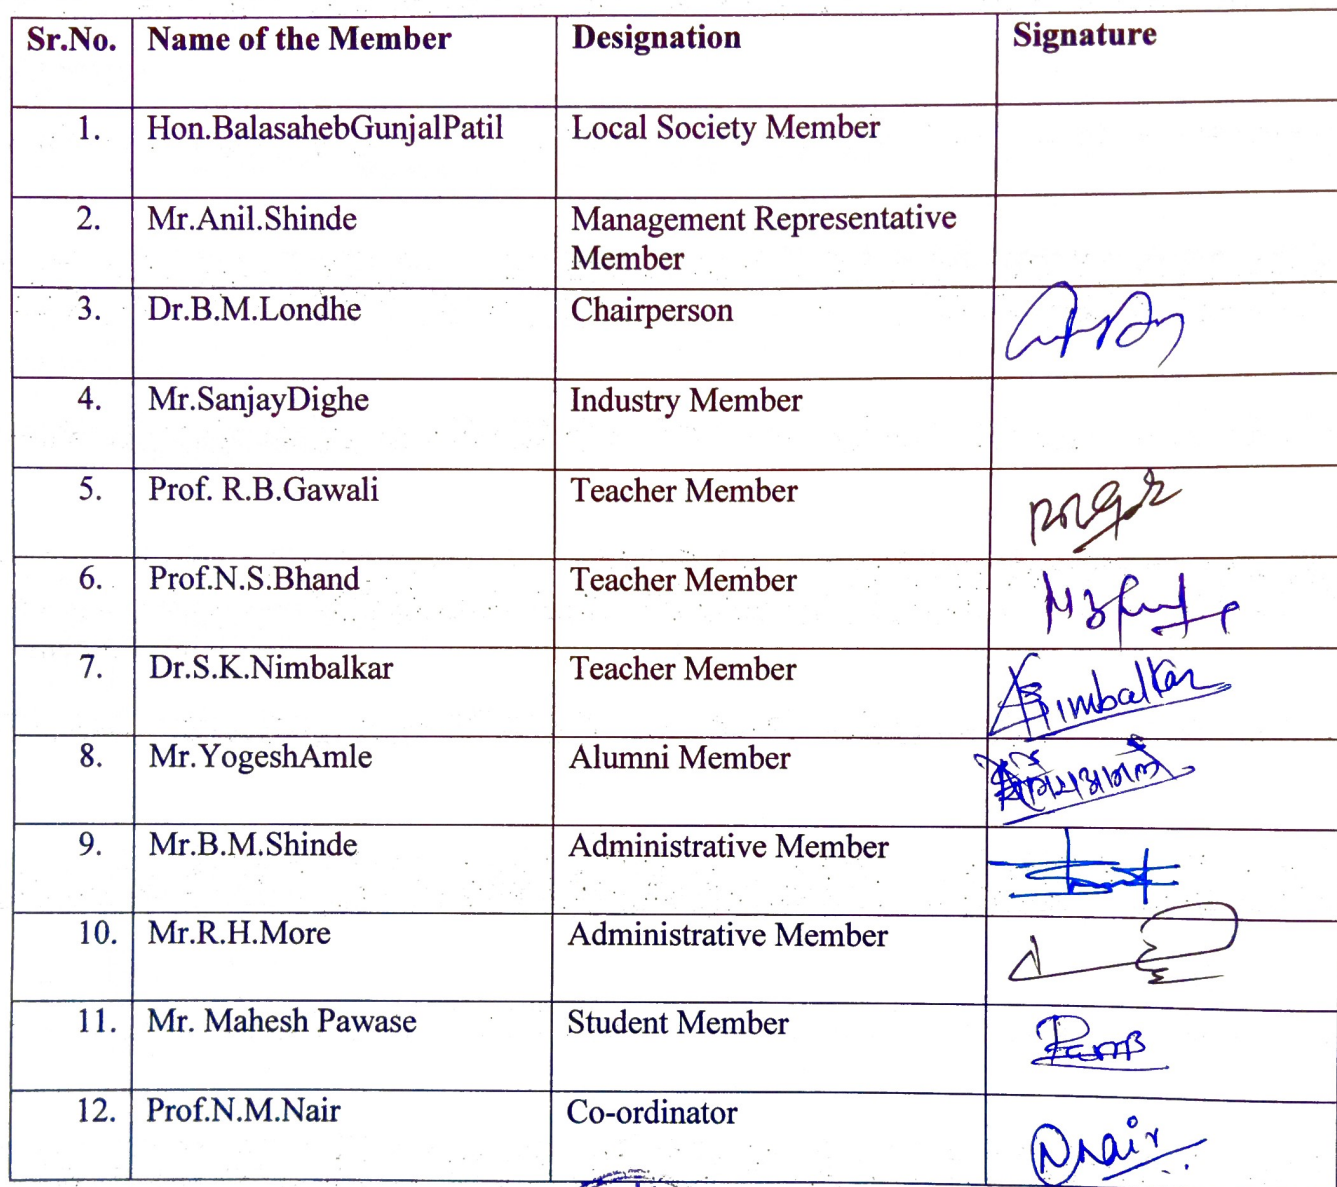 Sr.No. Name of the Member Designation Signature
1. Hon.BalasahebGunjalPatil Local Society Member
2. Mr.Anil.Shinde Management Representative
Member
3. Dr.B.M.Londhe Chairperson
4. Mr.SanjayDighe Industry Member
5. Prof. R.B.Gawali Teacher Member
6. Prof.N.S.Bhand Teacher Member
7. Dr.S.K.Nimbalkar Teacher Member Nimbalkar
8. Mr.YogeshAmle Alumni Member
9. Mr.B.M.Shinde Administrative Member
10. Mr.R.H.More Administrative Member
11. Mr. Mahesh Pawase Student Member
12. Prof.N.M.Nair Co-ordinator Nair